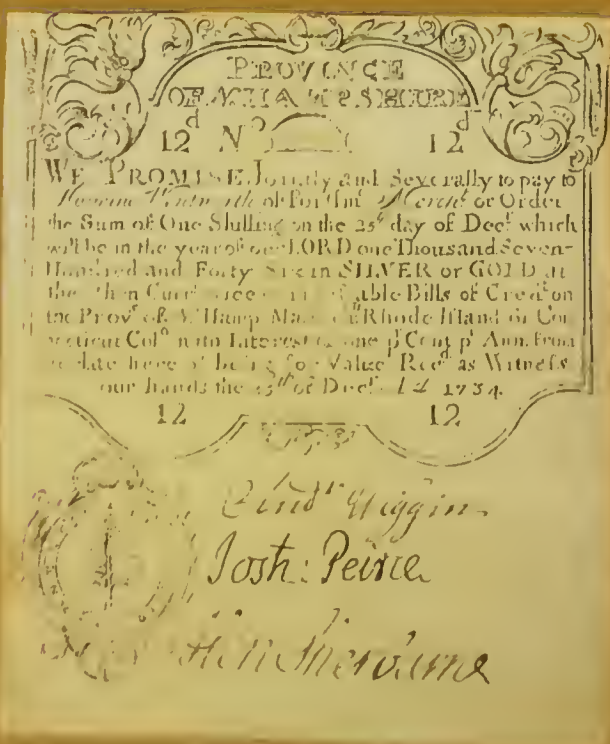 PROVINCE
OF N HAMPSHIRE
12d No 12d
WE PROMISE Jointly and Severally to pay to
of Ports'm Mercht or Order
the Sum of One Shilling on the 25th day of Decr which
will be in the year of our LORD one Thousand Seven-
Hundred and Forty Six in SILVER or GOLD at
the then Currt Price or in able Bills of Credt on
the Prov of N Hamp Rhode Island or Con-
necticut Colo with Interest one pr Cent pr Ann. from
date hereof being for Value Recd as Witness
our hands the 25th of Decr 1734.
12 12
Wiggin
Josh: Peirce
Hen Sherburne